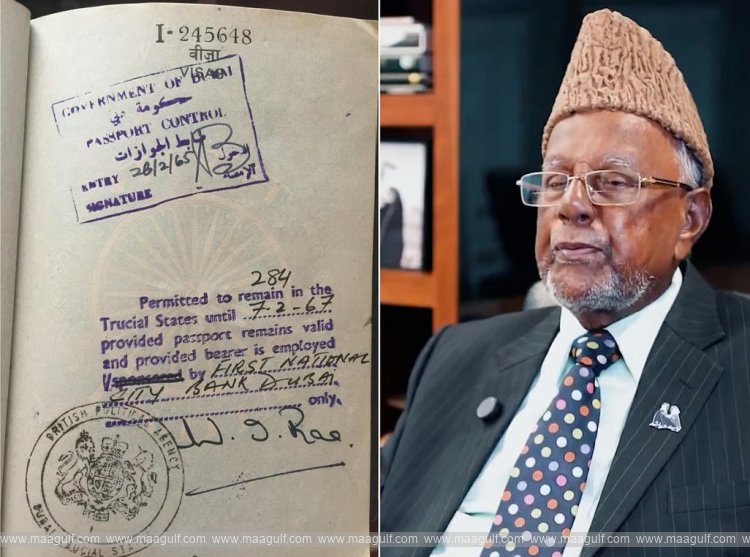 I-245648
वीज़ा
VISA
GOVERNMENT OF DUBAI
حكومة دبي
PASSPORT CONTROL
ضابط الجوازات
ENTRY 28/2/65 الدخول
SIGNATURE الامضاء
284
Permitted to remain in the
Trucial States until 7-2-67
provided passport remains valid
and provided bearer is employed
/sponsored by FIRST NATIONAL
CITY BANK DUBAI.
only.
W. J. Rae.
BRITISH POLITICAL AGENCY
DUBAI TRUCIAL STATES
www.maagulf.com www.maagulf.com www.maagulf.com www.maagulf.com www.maagulf.com www.maagulf.com www.maagulf.com